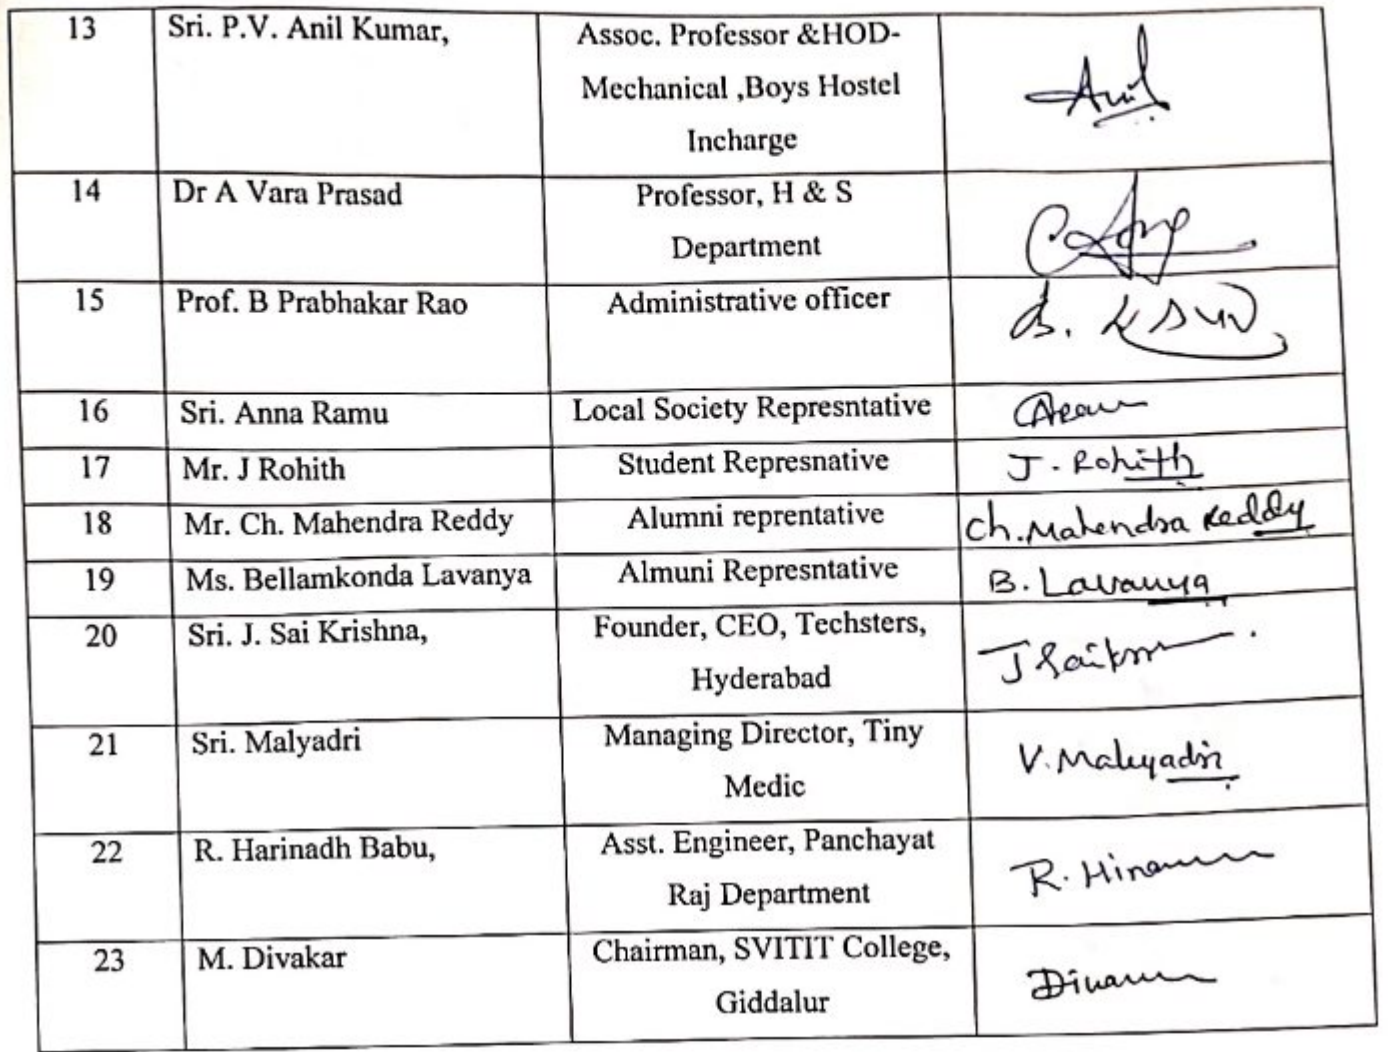 13 Sri. P.V. Anil Kumar, Assoc. Professor &HOD-
Mechanical ,Boys Hostel
Incharge Anil
14 Dr A Vara Prasad Professor, H & S
Department
15 Prof. B Prabhakar Rao Administrative officer
16 Sri. Anna Ramu Local Society Represntative
17 Mr. J Rohith Student Represnative J. Rohith
18 Mr. Ch. Mahendra Reddy Alumni reprentative Ch. Mahendra Reddy
19 Ms. Bellamkonda Lavanya Almuni Represntative B. Lavanya
20 Sri. J. Sai Krishna, Founder, CEO, Techsters,
Hyderabad
21 Sri. Malyadri Managing Director, Tiny
Medic V. Malyadri
22 R. Harinadh Babu, Asst. Engineer, Panchayat
Raj Department
23 M. Divakar Chairman, SVITIT College,
Giddalur